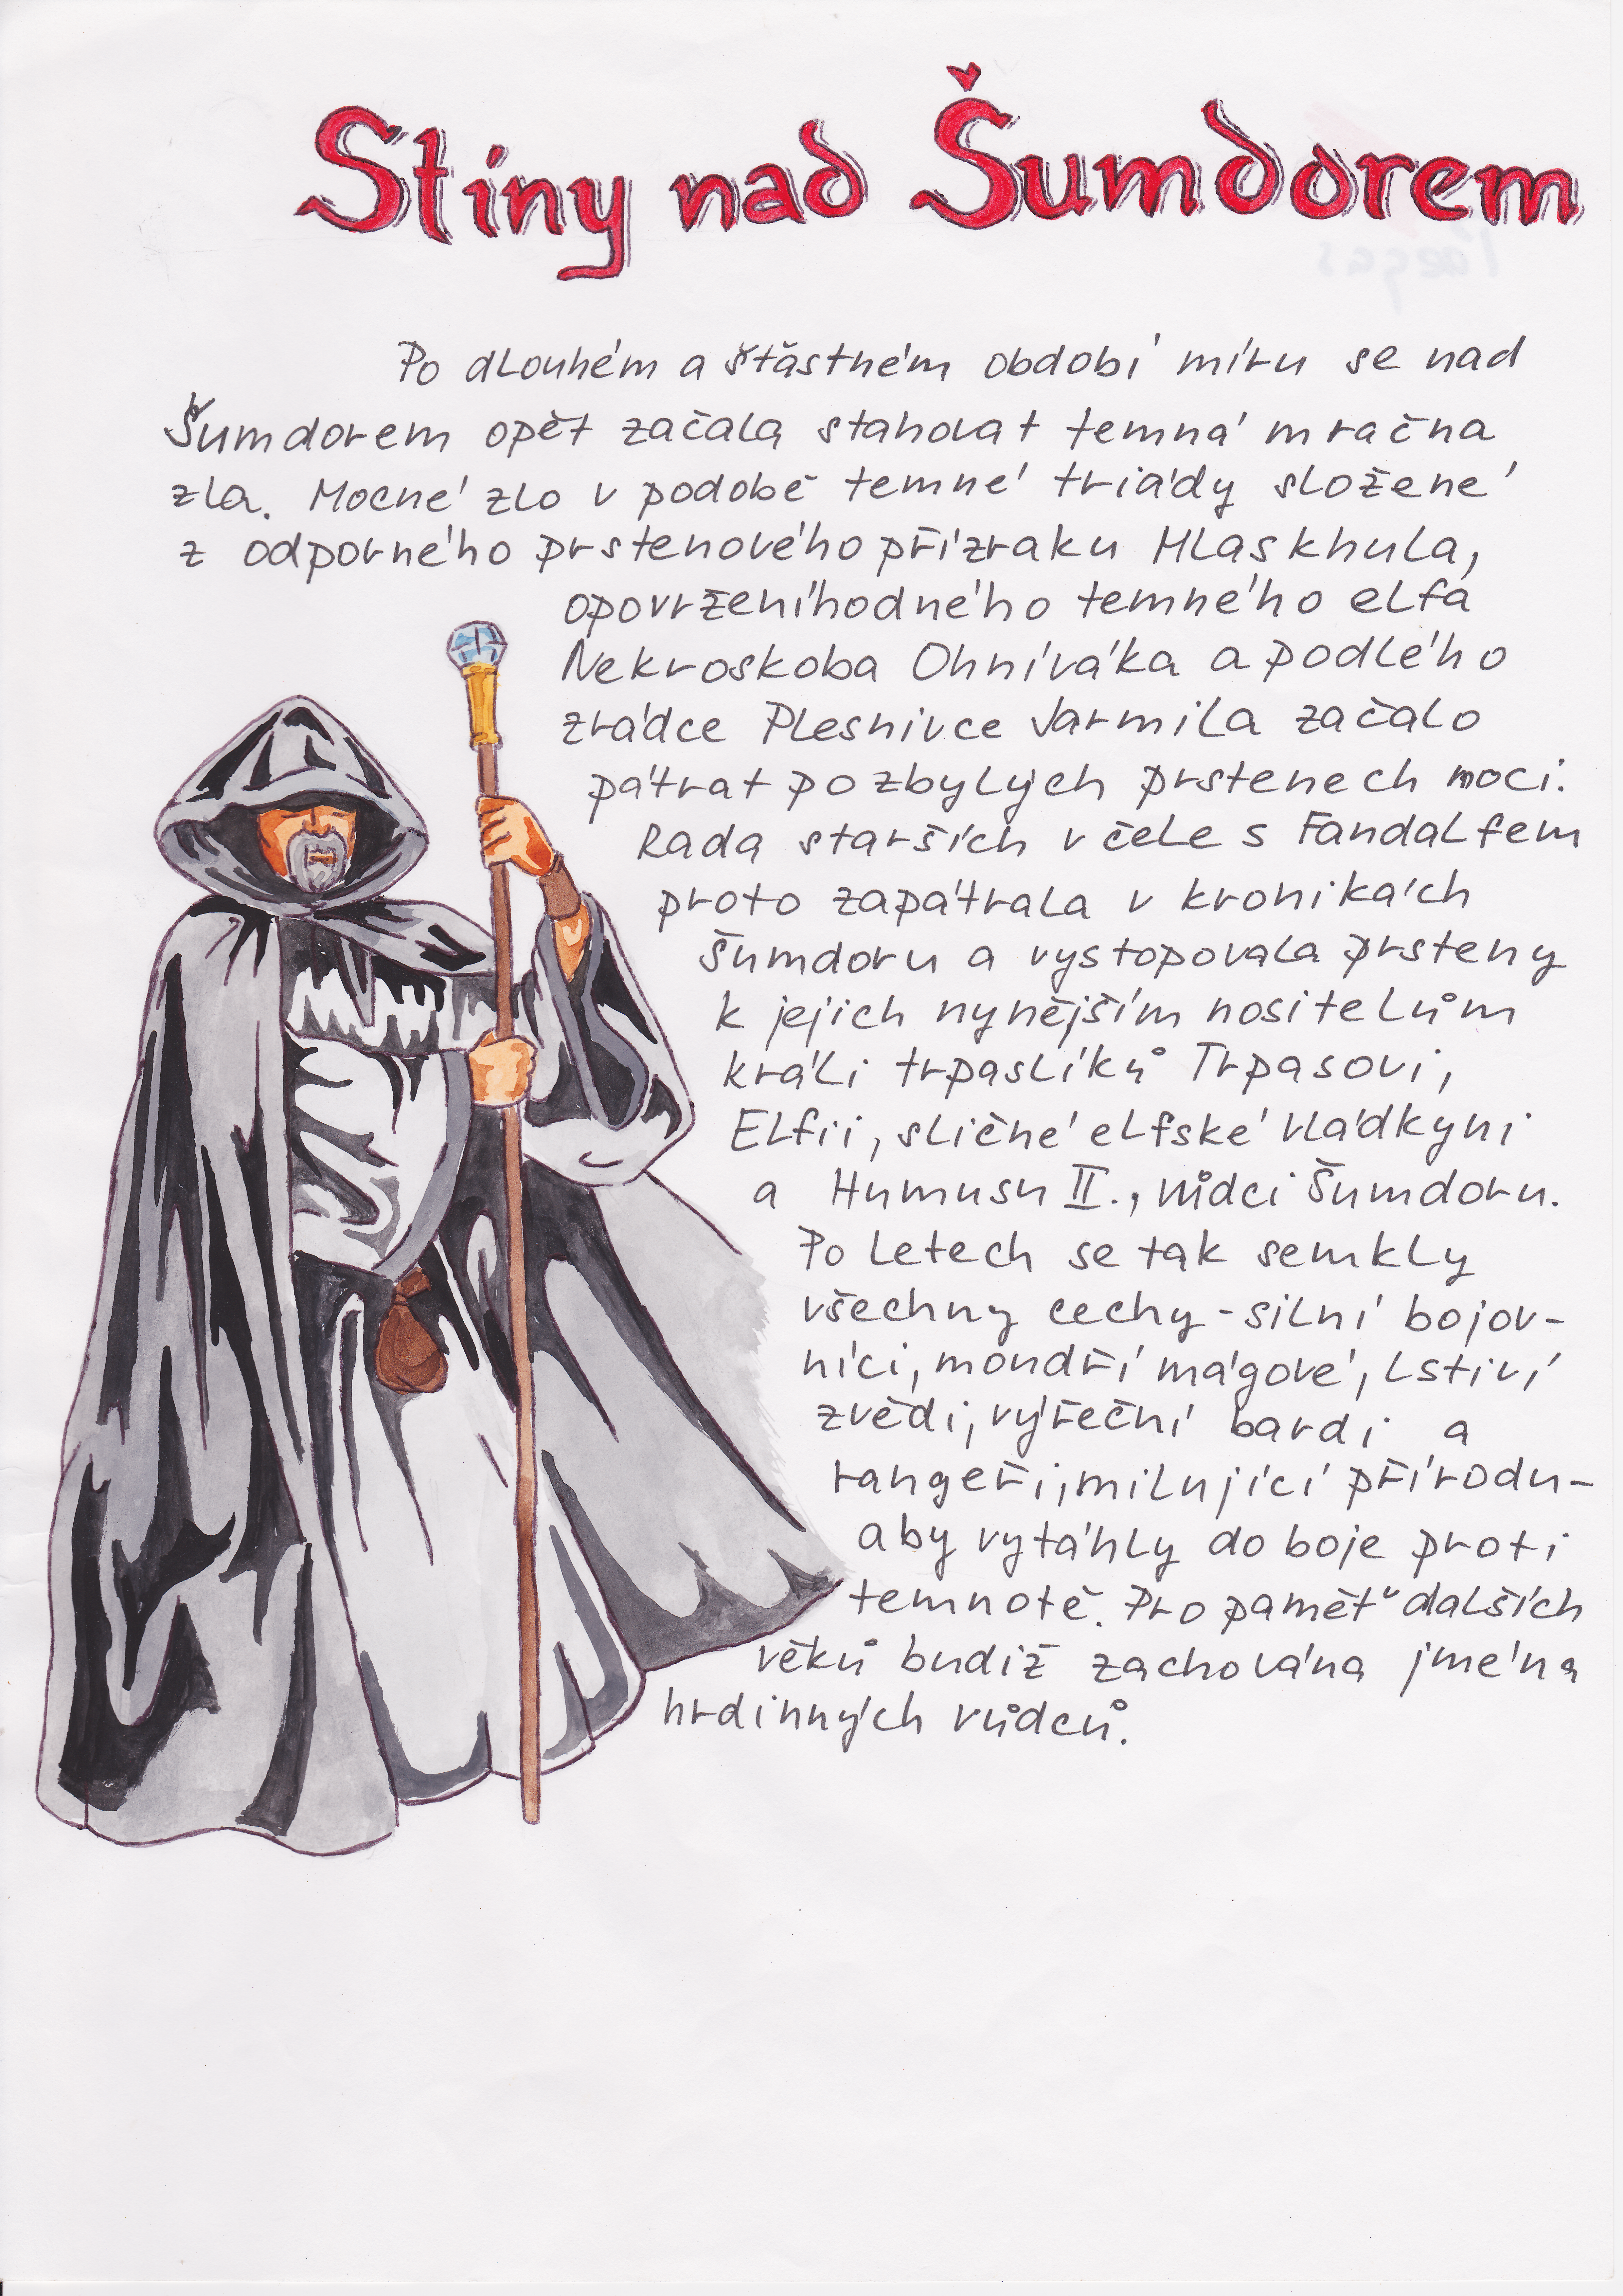 Stíny nad Šumdorem
Po dlouhém a šťastném období míru se nad
Šumdorem opět začala stahovat temná mračna
zla. Mocné zlo v podobě temné triády složené
z odporného prstenového přízraku Mlaskhula,
opovrženíhodného temného elfa
Nekroskoba Ohniváka a podlého
zrádce Plesnivce Jarmila začalo
pátrat po zbylých prstenech moci.
Rada starších v čele s Fandalfem
proto zapátrala v kronikách
Šumdoru a vystopovala prsteny
k jejich nynějším nositelům
králi trpaslíků Trpasovi,
Elfii, sličné elfské vládkyni
a Humusu II., vůdci Šumdoru.
Po letech se tak semkly
všechny cechy - silní bojov-
níci, moudří mágové, lstiví
zvědi, výřeční bardi a
rangeři, milující přírodu -
aby vytáhly do boje proti
temnotě. Pro paměť dalších
věků budiž zachována jména
hrdinných vůdců.